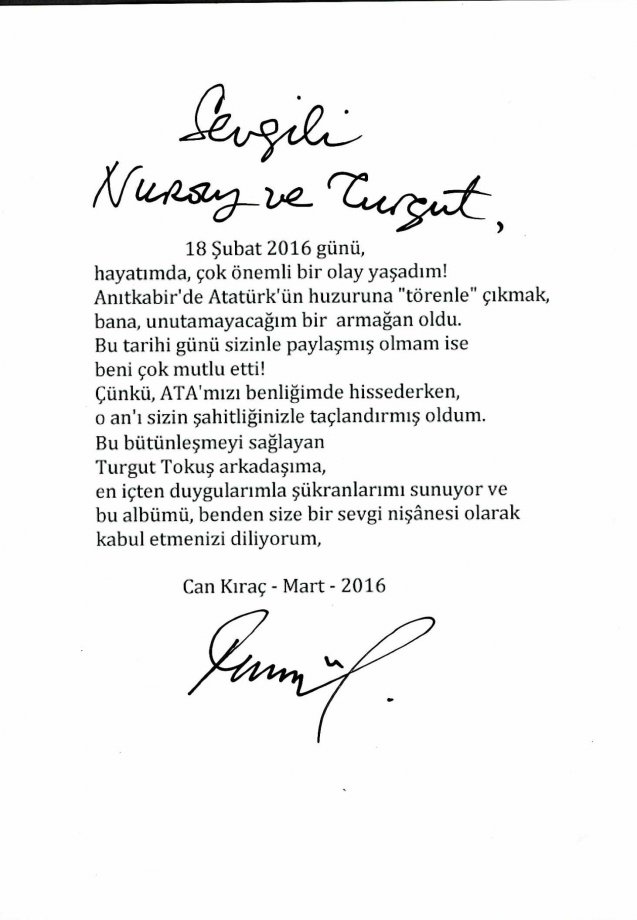 Sevgili
Nuray ve Turgut,
18 Şubat 2016 günü,
hayatımda, çok önemli bir olay yaşadım!
Anıtkabir'de Atatürk'ün huzuruna "törenle" çıkmak,
bana, unutamayacağım bir armağan oldu.
Bu tarihi günü sizinle paylaşmış olmam ise
beni çok mutlu etti!
Çünkü, ATA'mızı benliğimde hissederken,
o an'ı sizin şahitliğinizle taçlandırmış oldum.
Bu bütünleşmeyi sağlayan
Turgut Tokuş arkadaşıma,
en içten duygularımla şükranlarımı sunuyor ve
bu albümü, benden size bir sevgi nişânesi olarak
kabul etmenizi diliyorum,
Can Kıraç - Mart - 2016